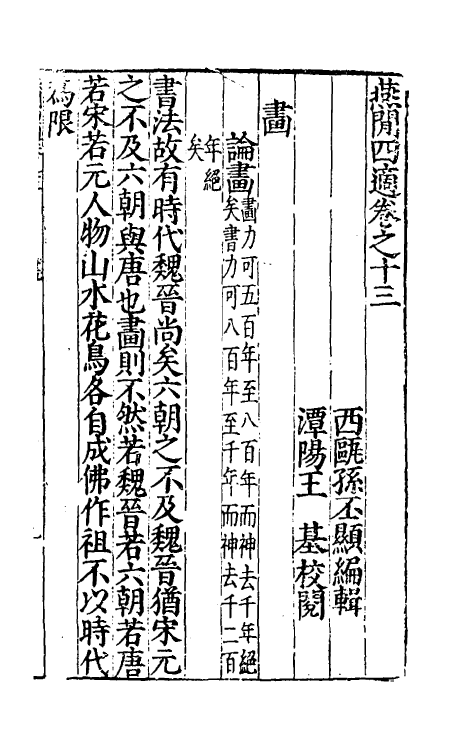 燕閒四適卷之十三
西甌孫丕顯編輯
潭陽王　基校閱
畫
論畫畫力可五百年至八百年而神去千年絕
矣書力可八百年至千年而神去千二百
年絕
矣
書法故有時代魏晉尚矣六朝之不及魏晉猶宋元
之不及六朝與唐也畫則不然若魏晉若六朝若唐
若宋若元人物山水花鳥各自成佛作祖不以時代
爲限